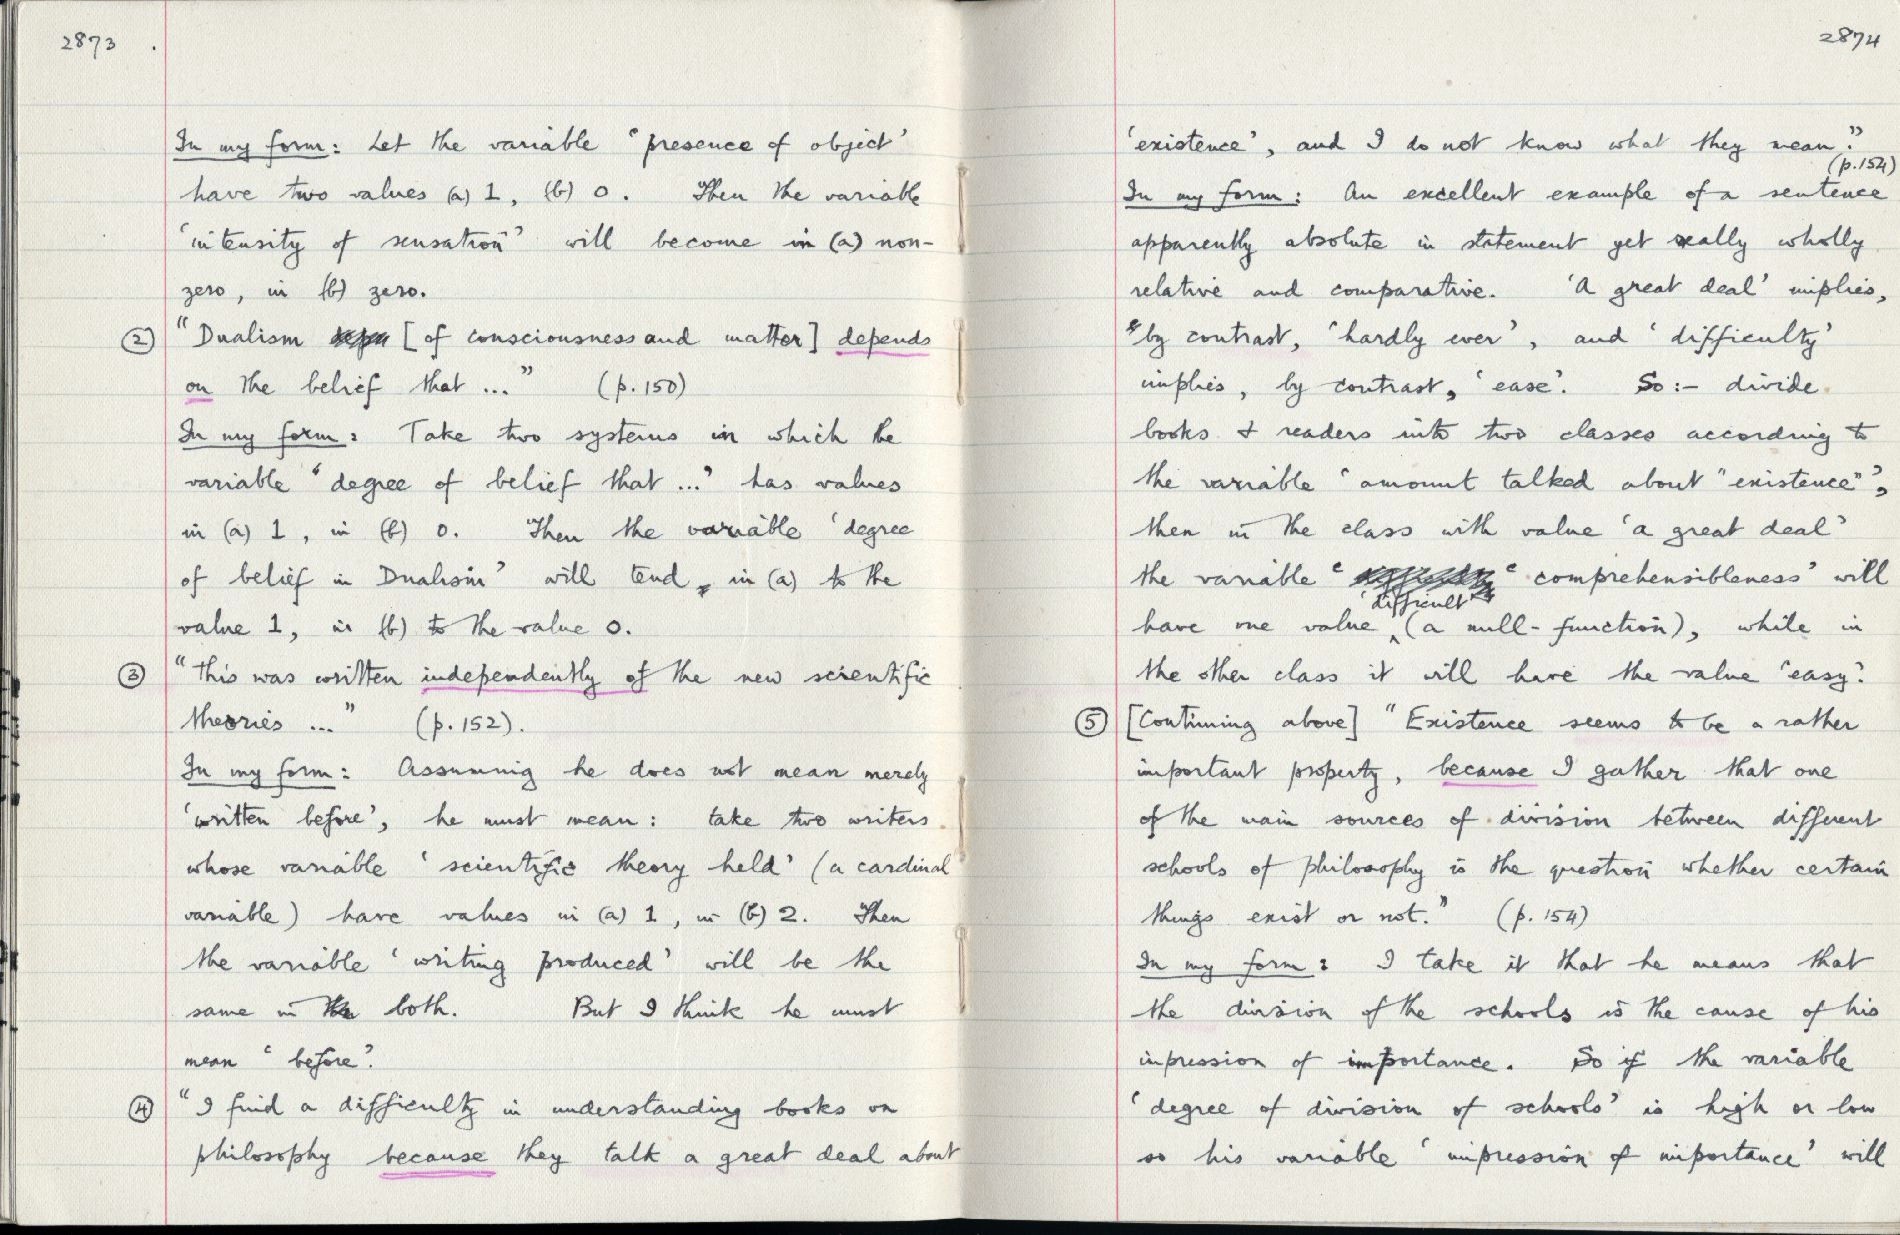 2873
In my form: Let the variable 'presence of object'
have two values (a) 1, (b) 0. Then the variable
'intensity of sensation' will become in (a) non-
zero, in (b) zero.
② "Dualism [of consciousness and matter] depends
on the belief that ..." (p.150)
In my form: Take two systems in which the
variable 'degree of belief that ...' has values
in (a) 1, in (b) 0. Then the variable 'degree
of belief in Dualism' will tend, in (a) to the
value 1, in (b) to the value 0.
③ "This was written independently of the new scientific
theories ..." (p.152).
In my form: Assuming he does not mean merely
'written before', he must mean: take two writers
whose variable 'scientific theory held' (a cardinal
variable) have values in (a) 1, in (b) 2. Then
the variable 'writing produced' will be the
same in both. But I think he must
mean 'before'.
④ "I find a difficulty in understanding books on
philosophy because they talk a great deal about
2874
'existence', and I do not know what they mean."
(p.154)
In my form: An excellent example of a sentence
apparently absolute in statement yet really wholly
relative and comparative. 'A great deal' implies,
by contrast, 'hardly ever', and 'difficulty'
implies, by contrast, 'ease'. So:- divide
books & readers into two classes according to
the variable 'amount talked about "existence"',
then in the class with value 'a great deal'
the variable 'comprehensibleness' will
'difficult'
have one value (a null-function), while in
the other class it will have the value 'easy'.
⑤ [Continuing above] "Existence seems to be a rather
important property, because I gather that one
of the main sources of division between different
schools of philosophy is the question whether certain
things exist or not." (p.154)
In my form: I take it that he means that
the division of the schools is the cause of his
impression of importance. So if the variable
'degree of division of schools' is high or low
so his variable 'impression of importance' will